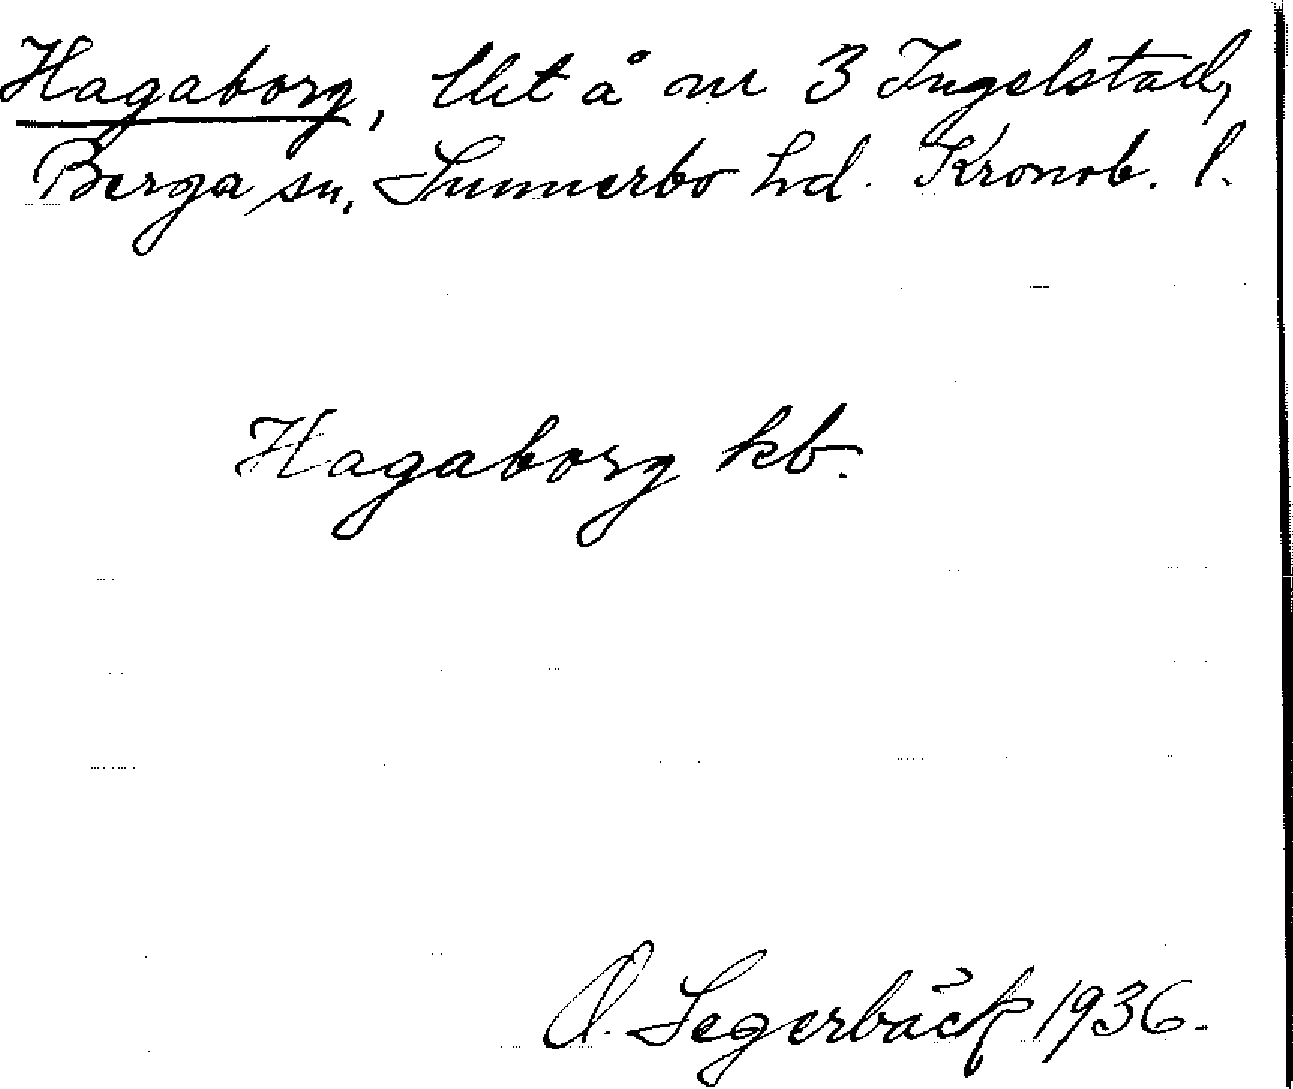 Hagaborg, lht å nr 3 Ingelstad,
Berga sn, Sunnerbo hd. Kronob. l.
Hagaborg kb.
O. Segerbäck 1936.